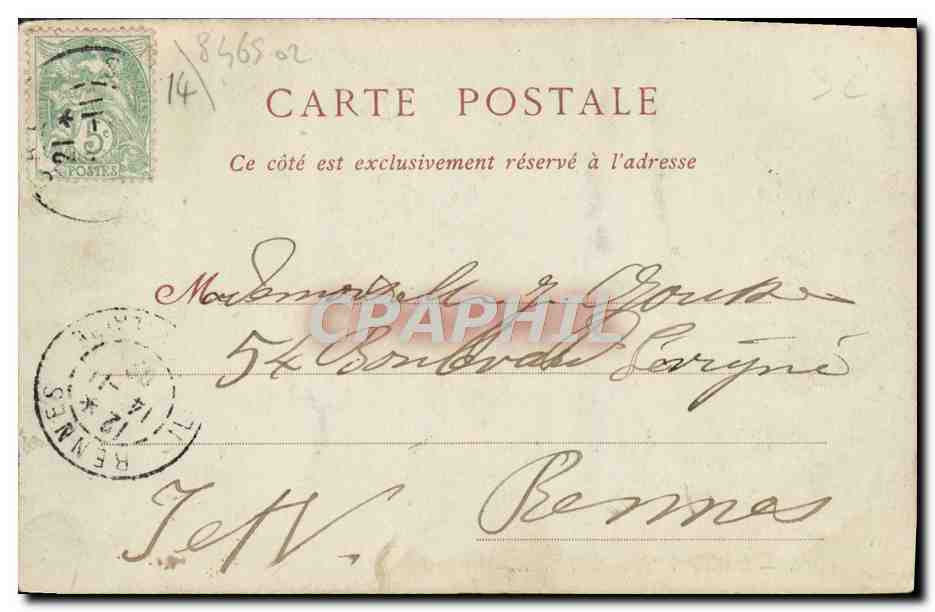 8465 02
14
CARTE POSTALE
Ce côté est exclusivement réservé à l'adresse
5c
POSTES
21 * -11
Mademoiselle
CPAPHIL
54 Boulevard Sévigné
RENNES
12 *
14
Rennes
I et V.